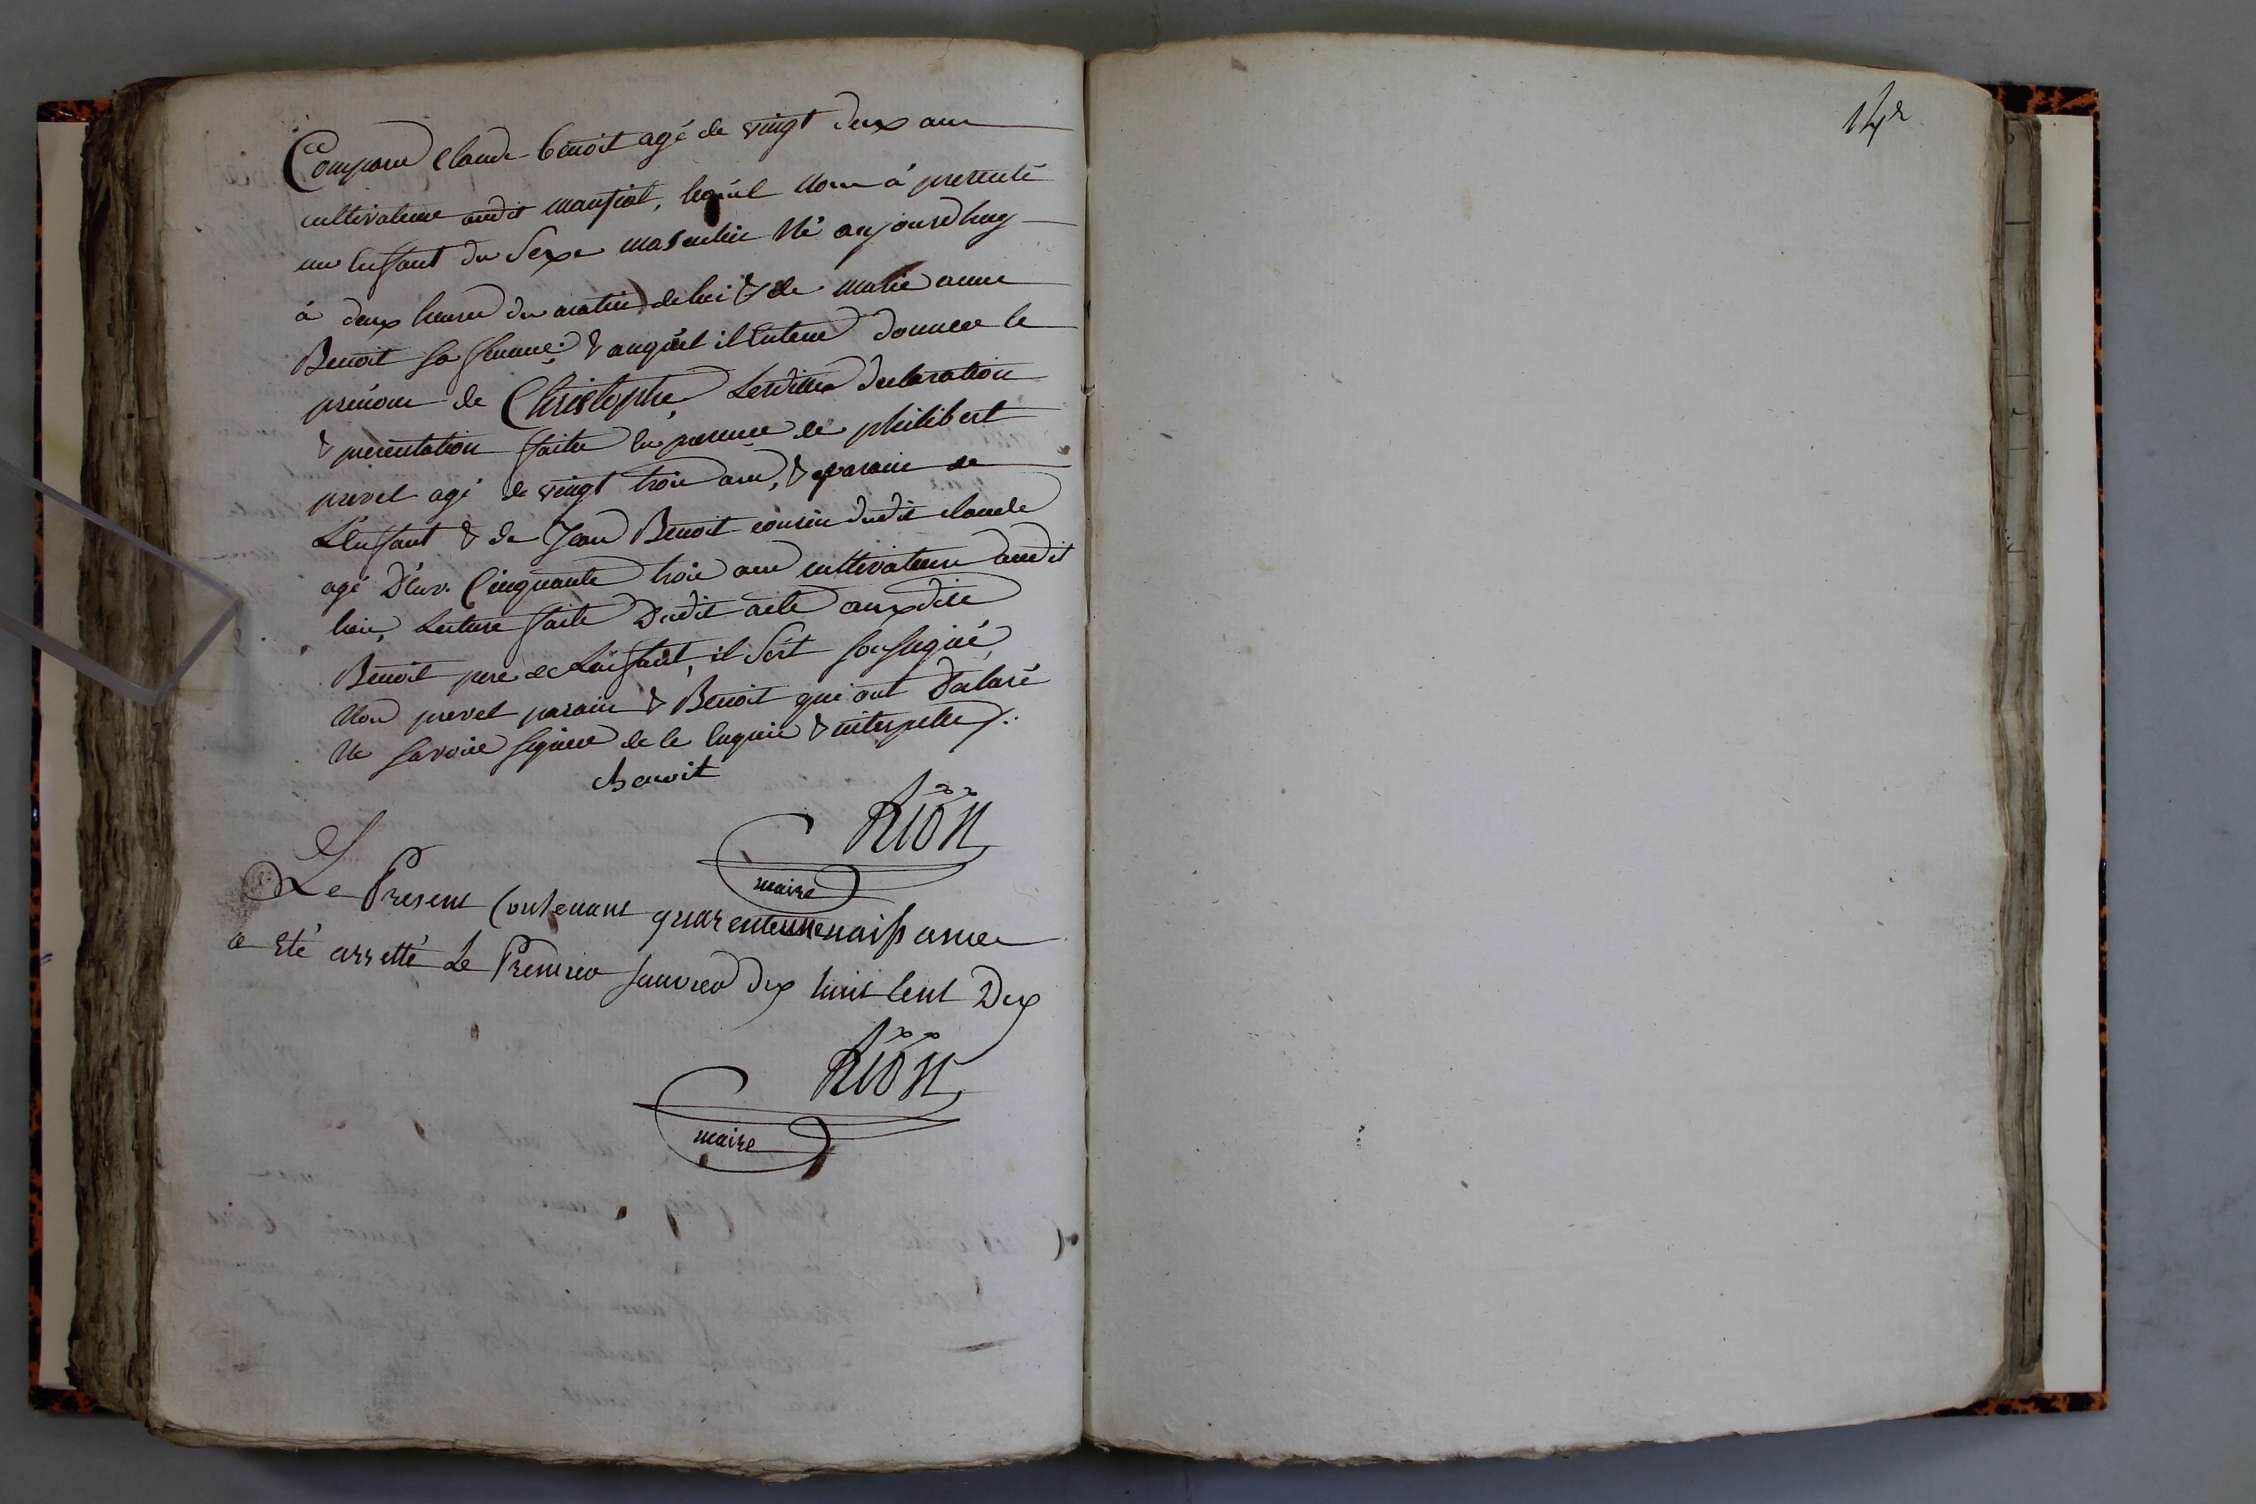 Comparu Claude benoit agé de vingt deux ans
cultivateur audit mansiat, lequel nous à presenté
un Enfant du Sexe masculin Né aujourdhuy
à deux heures du matin de lui & de marie anne
Benoit sa femme & auquel il Entend donner le
prénom de Christophe, Lesdittes declaration
& presentation faite En presence de philibert
prevel agé de vingt trois ans, & parain de
L'Enfant & de Jean Benoit cousin dudit claude
agé D'Env. Cinquante trois ans cultivateur audit
lieu, Lecture faite Dudit acte auxdits
Benoit pere de L'enfant, il S'est soussigné,
Non prevel parain & Benoit qui ont Déclaré
Ne savoir signer de ce Enquis & interpellés
c benoit
RION
maire
Le Present Contenant quarente une naissances
a eté arretté Le Premier Janvier dix huit Cent Dix
RION
maire